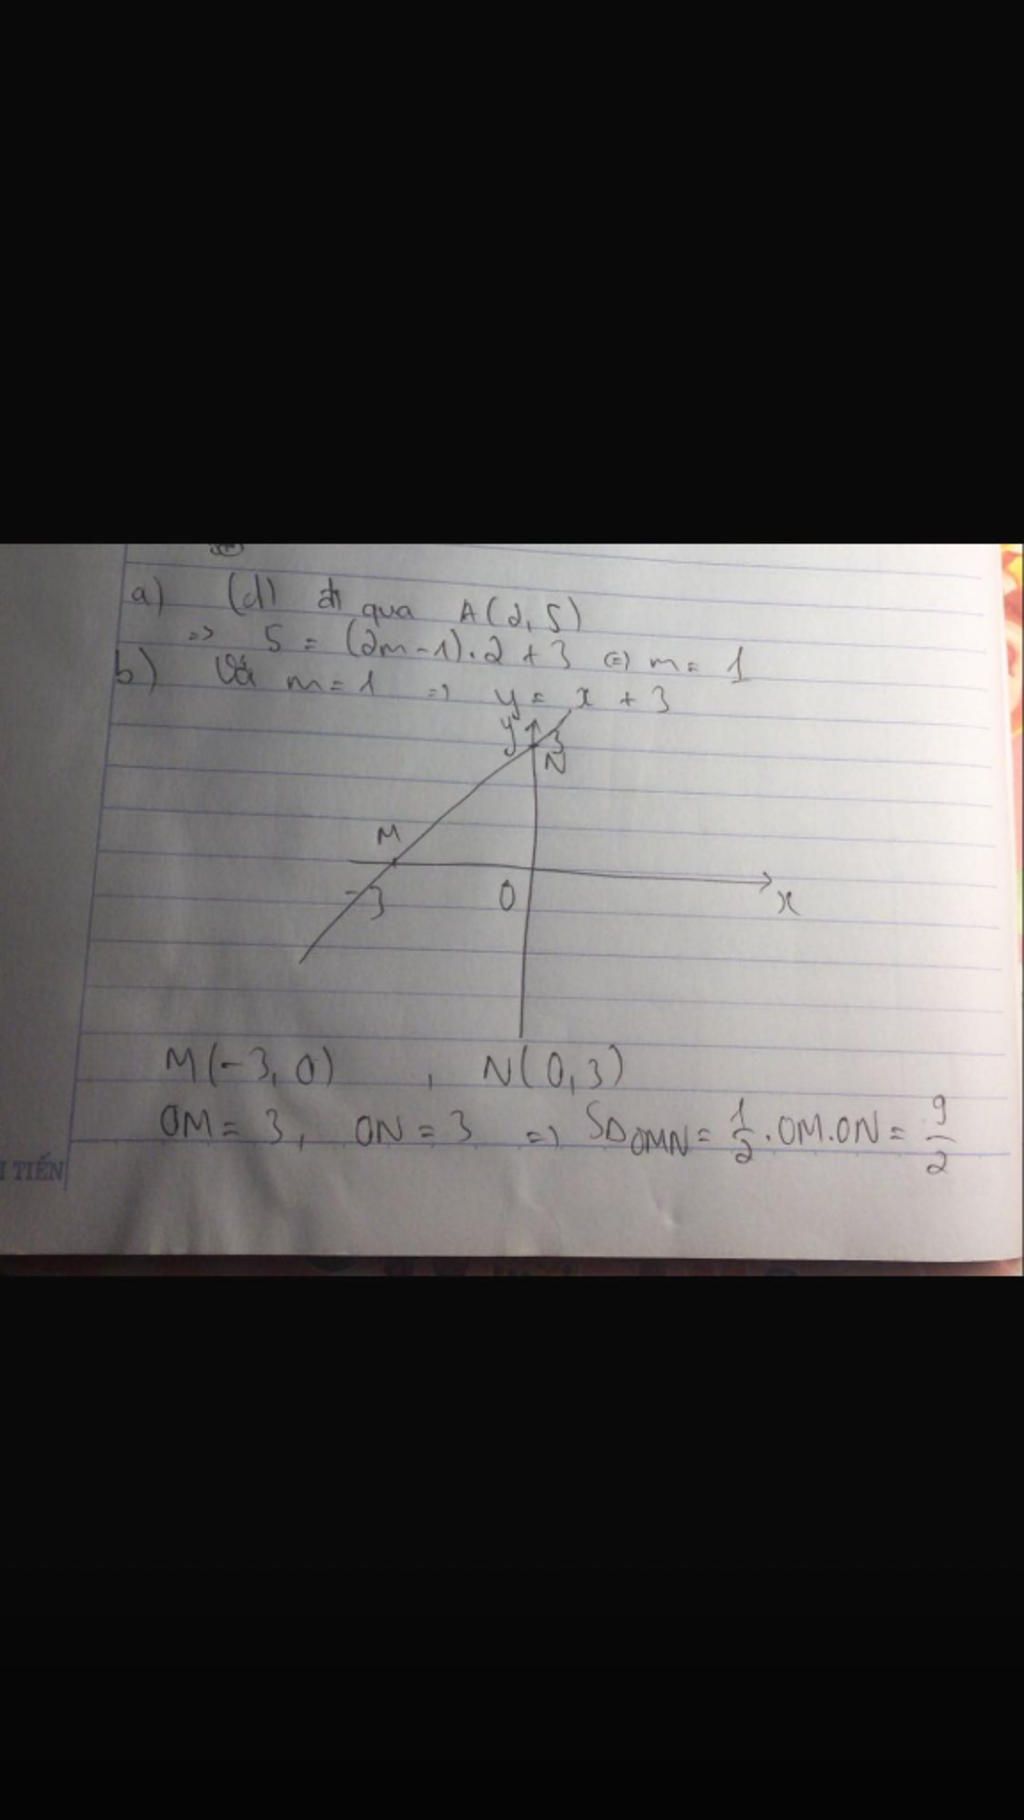 a) (d) đi qua A(2,5)
=> 5 = (2m-1).2 + 3 <=> m = 1
b) Với m = 1 => y = x + 3
y 3
N
M
-3 O x
M(-3,0) , N(0,3)
OM = 3, ON = 3 => SΔOMN = 1/2 . OM.ON = 9/2
TIẾN